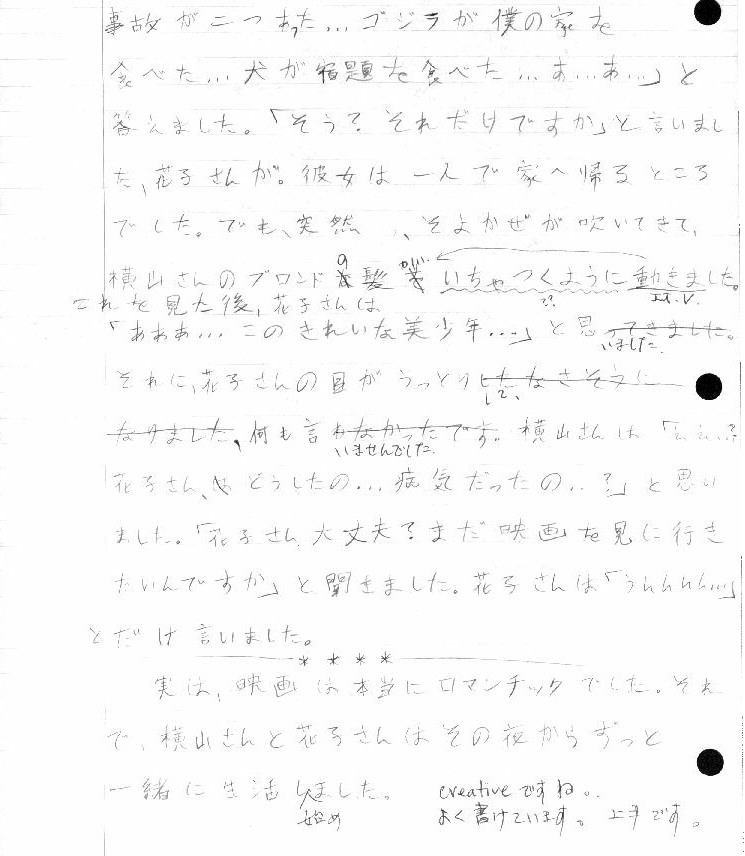 事故が二つあった…ゴジラが僕の家を
食べた…犬が宿題を食べた…あ…あ…」と
答えました。「そう？それだけですか」と言いまし
た、花子さんが。彼女は一人で家へ帰るところ
でした。でも、突然、そよかぜが吹いてきて、
横山さんのブロンド の 髪 がい いちゃつくように動きました。
これを見た後、花子さんは
「あああ…このきれいな美少年…」と思ってきました。
いました。
それに、花子さんの目がうっとりしたなさそうに
して、
なりました、何も言わなかったです。横山さんは「ええ？
いませんでした。
花子さん、どうしたの…病気だったの…？」と思い
ました。「花子さん、大丈夫？まだ映画を見に行き
たいんですか」と聞きました。花子さんは「うんんん…」
とだけ言いました。
＊＊＊＊
実は、映画は本当にロマンチックでした。それ
で、横山さんと花子さんはその夜からずっと
一緒に生活しました。 creativeですね。
始め よく書けています。上手です。